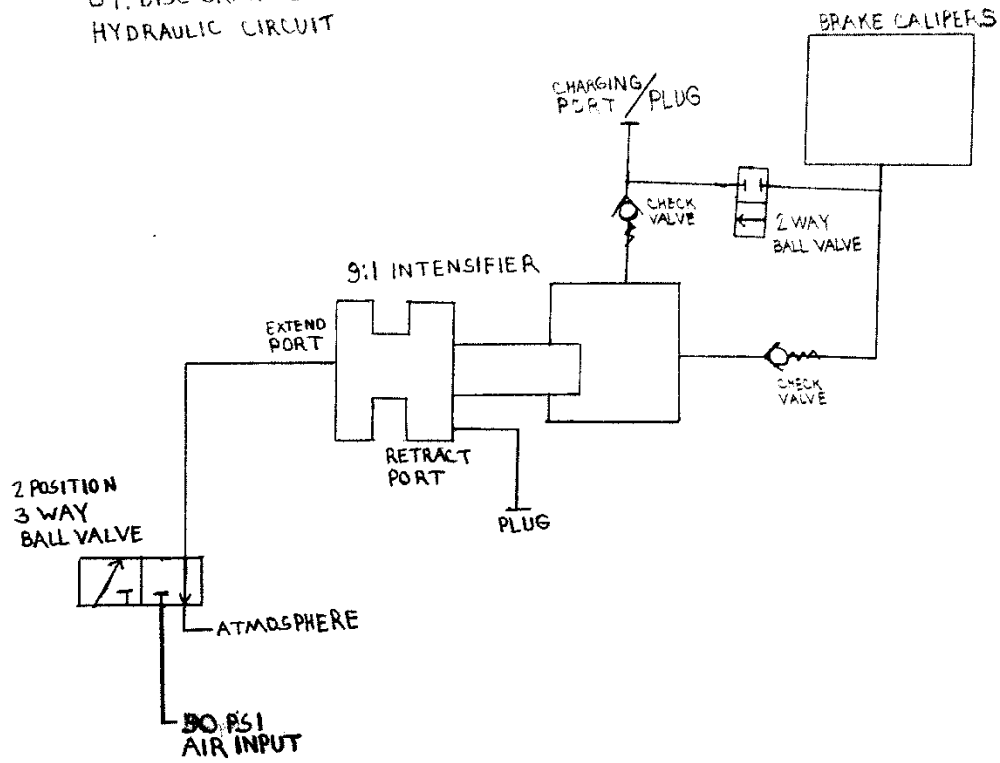 HYDRAULIC CIRCUIT
BRAKE CALIPERS
CHARGING
PORT / PLUG
CHECK
VALVE
2 WAY
BALL VALVE
9:1 INTENSIFIER
EXTEND
PORT
CHECK
VALVE
RETRACT
PORT
PLUG
2 POSITION
3 WAY
BALL VALVE
ATMOSPHERE
90 PSI
AIR INPUT